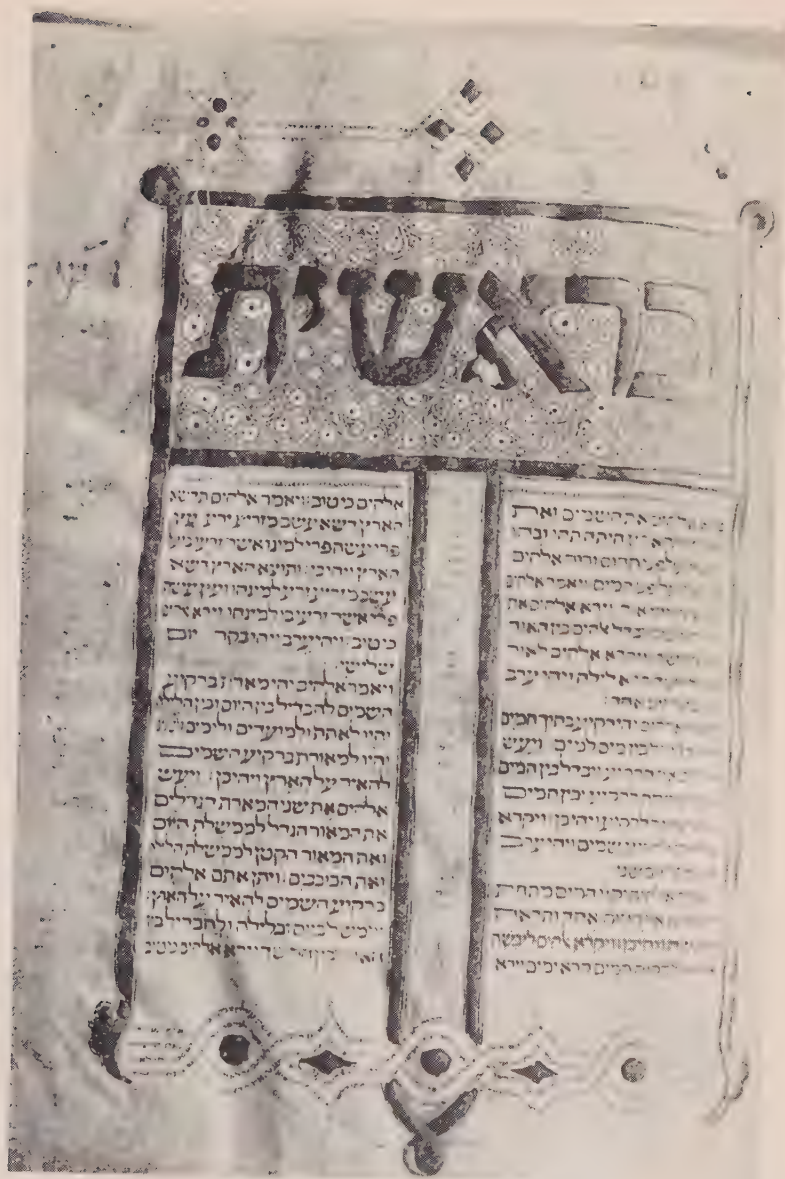 בראשית
אלהים את השמים ואת
היתה תהו ובהו
על פני תהום ורוח אלהים
על פני המים ויאמר אלהים
אור וירא אלהים את
ויבדל אלהים בין האור
ויקרא אלהים לאור
קרא לילה ויהי ערב
יום אחד׃
אלהים יהי רקיע בתוך המים
מבדיל בין מים למים ויעש
את הרקיע ויבדל בין המים
לרקיע ובין המים
מעל לרקיע ויהי כן׃ ויקרא
לרקיע שמים ויהי ערב
יום שני
אלהים יקוו המים מתחת
אל מקום אחד ותראה
היבשה ויהי כן׃ ויקרא אלהים ליבשה
ולמקוה המים קרא ימים וירא
אלהים כי טוב׃ ויאמר אלהים תדשא
הארץ דשא עשב מזריע זרע עץ
פרי עשה פרי למינו אשר זרעו בו על
הארץ ויהי כן׃ ותוצא הארץ דשא
עשב מזריע זרע למינהו ועץ עשה
פרי אשר זרעו בו למינהו וירא אלהים
כי טוב׃ ויהי ערב ויהי בקר יום
שלישי׃
ויאמר אלהים יהי מארת ברקיע
השמים להבדיל בין היום ובין הלילה
והיו לאתת ולמועדים ולימים
והיו למאורת ברקיע השמים
להאיר על הארץ ויהי כן׃ ויעש
אלהים את שני המארת הגדלים
את המאור הגדל לממשלת היום
ואת המאור הקטן לממשלת הלילה
ואת הכוכבים׃ ויתן אתם אלהים
ברקיע השמים להאיר על הארץ׃
ולמשל ביום ובלילה ולהבדיל בין
האור ובין החשך וירא אלהים כי טוב